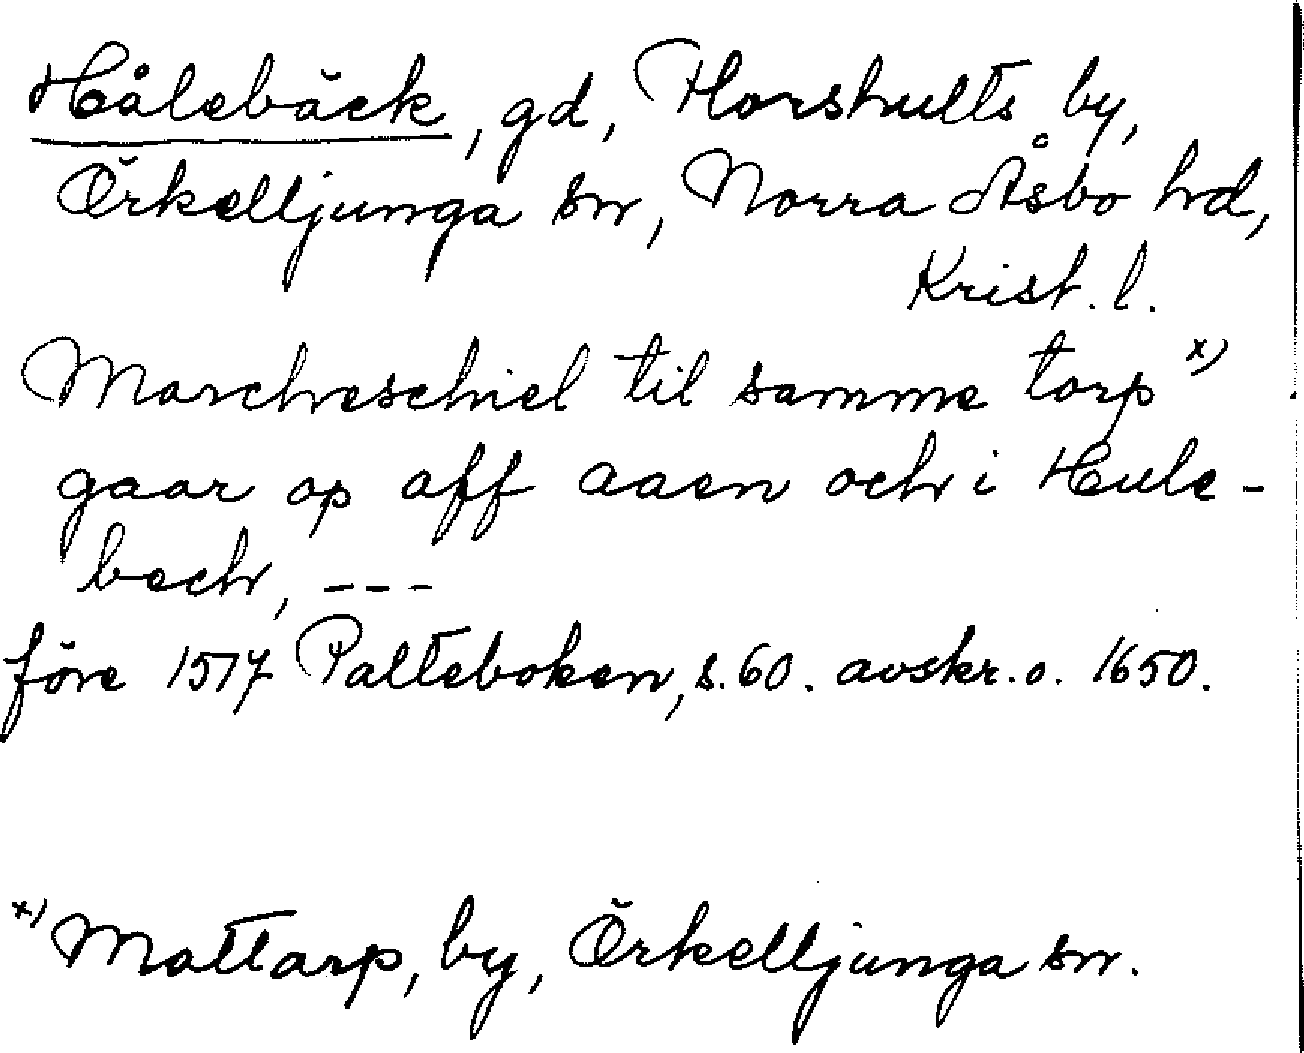 Hålebäck, gd, Horshults by,
Örkelljunga sn, Norra Åsbo hd,
Krist. l.
Marcheschiel til samme torp x)
gaar op aff aaen och i Hule-
bech, ---
före 1517 Palteboken, s. 60. avskr. o. 1650.
x) Mattarp, by, Örkelljunga sn.